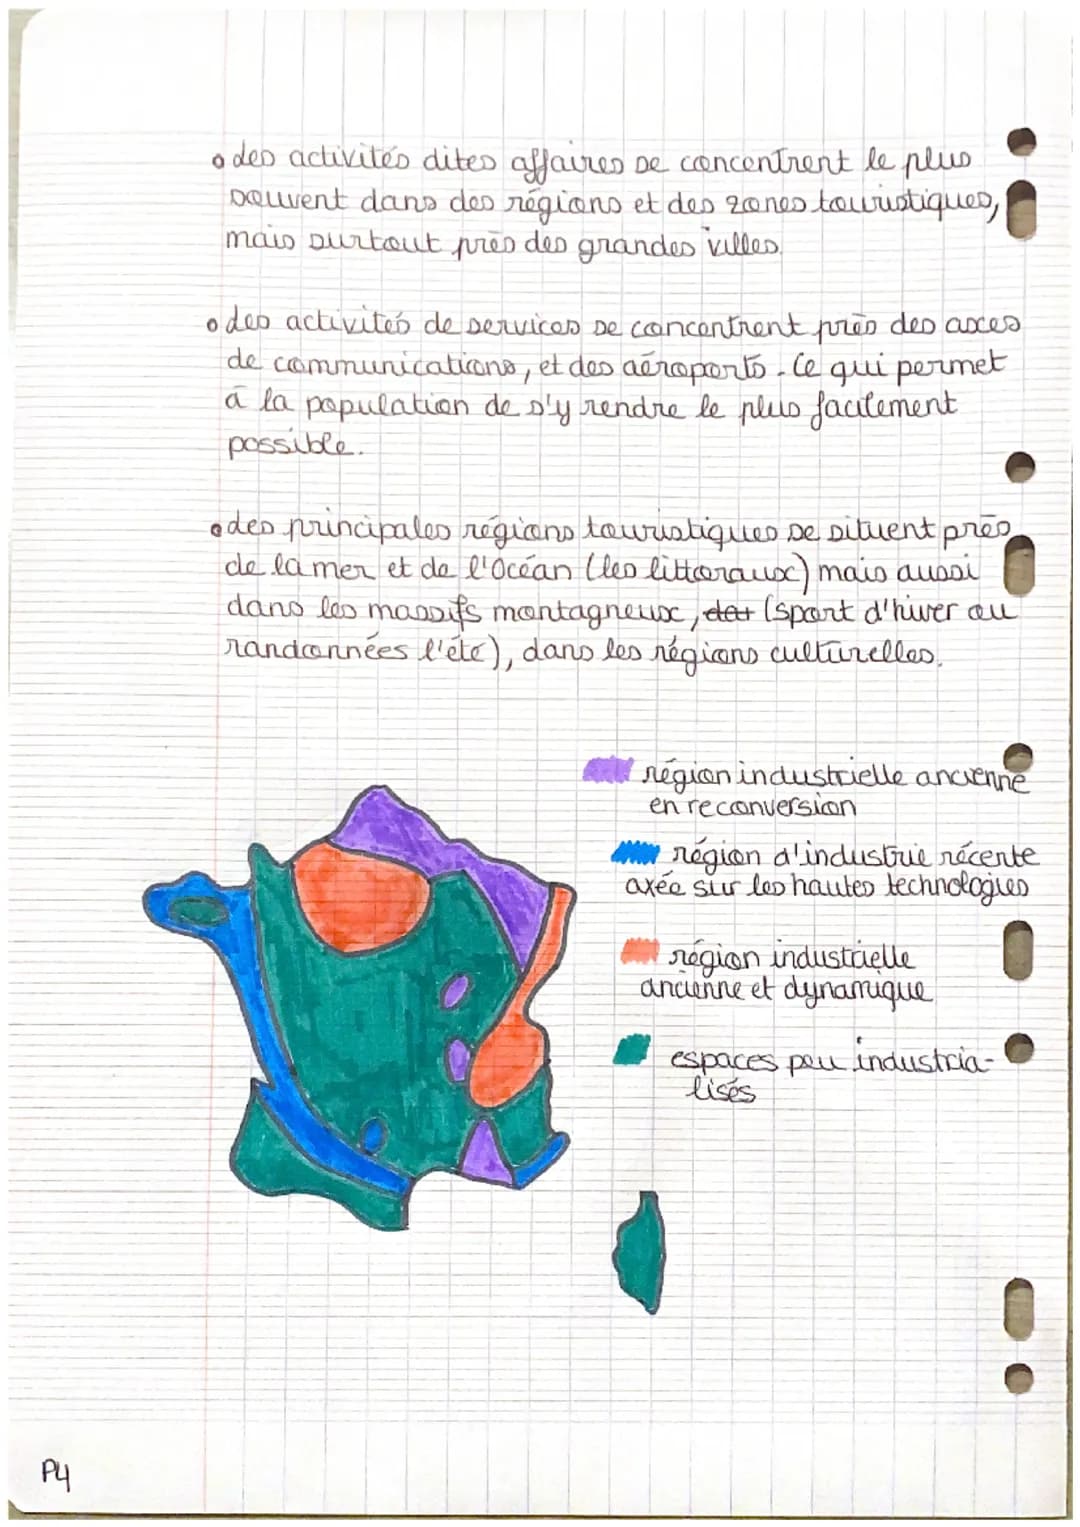 • des activités dites affaires se concentrent le plus
souvent dans des régions et des zones touristiques,
mais surtout près des grandes villes.
• des activités de services se concentrent près des axes
de communications, et des aéroports. Ce qui permet
à la population de s'y rendre le plus facilement
possible.
• des principales régions touristiques se situent près
de la mer et de l'Océan (les littoraux) mais aussi
dans les massifs montagneux, (sport d'hiver ou
randonnées l'été), dans les régions culturelles.
région industrielle ancienne
en reconversion
région d'industrie récente
axée sur les hautes technologies
région industrielle
ancienne et dynamique
espaces peu industria-
lisés
P4